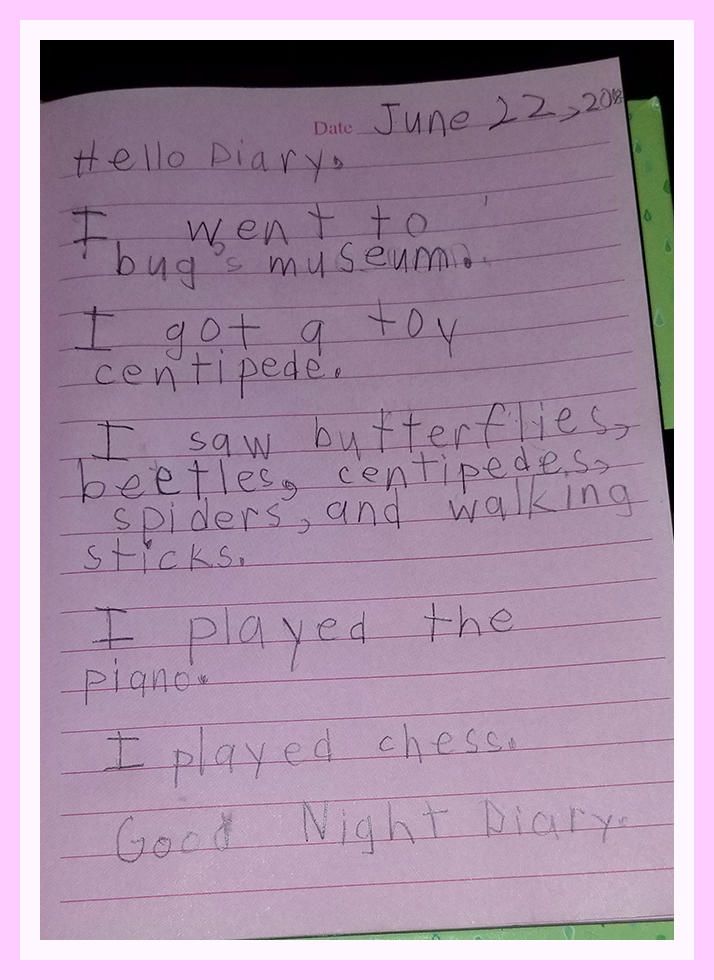 Date June 22, 2018
Hello Diary,
I went to
bug's museum.
I got a toy
centipede.
I saw butterflies,
beetles, centipedes,
spiders, and walking
sticks.
I played the
piano.
I played chess.
Good Night Diary.